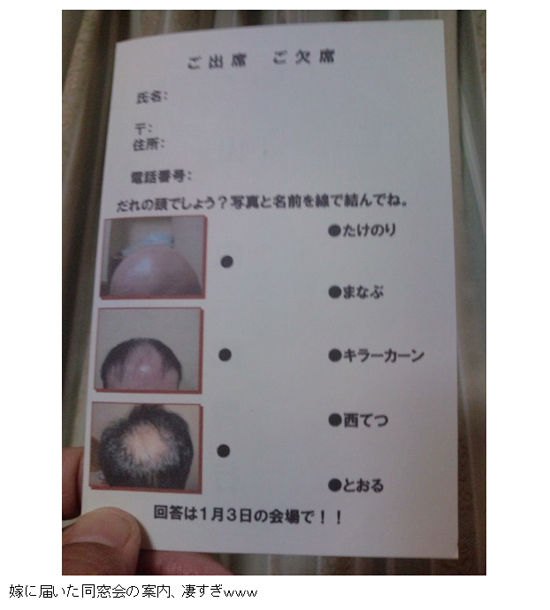 ご出席　ご欠席
氏名:
〒:
住所:
電話番号:
だれの頭でしょう？写真と名前を線で結んでね。
●たけのり
●
●まなぶ
●キラーカーン
●
●西てつ
●
●とおる
回答は1月3日の会場で！！
嫁に届いた同窓会の案内、凄すぎwww